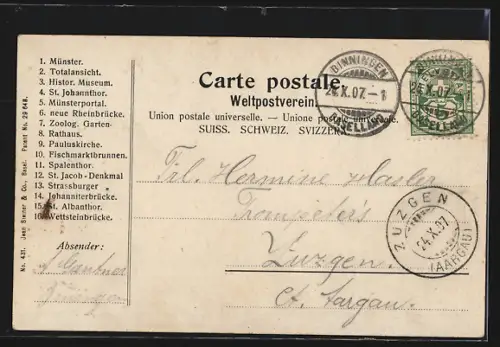 1. Münster.
2. Totalansicht.
3. Histor. Museum.
4. St. Johannthor.
5. Münsterportal.
6. neue Rheinbrücke.
7. Zoolog. Garten
8. Rathaus.
9. Pauluskirche.
10. Fischmarktbrunnen.
11. Spalenthor.
12. St. Jacob-Denkmal
13. Strassburger
14. Johanniterbrücke.
15. St. Albanthor.
16. Wettsteinbrücke.
Absender:
No. 431. Jean Steiner & Co., Basel. Patent No. 29 648.
Carte postale.
Weltpostverein.
Union postale universelle. — Unione postale universale.
SUISS. SCHWEIZ. SVIZZERA
BINNINGEN
24.X.07.-1
(BASELLAND)
24.X.07.
(BASELLAND)
Frl. Hermine Hasler
Trompeter's
Zuzgen.
Ct. Aargau.
ZUZGEN
24.X.07
(AARGAU)